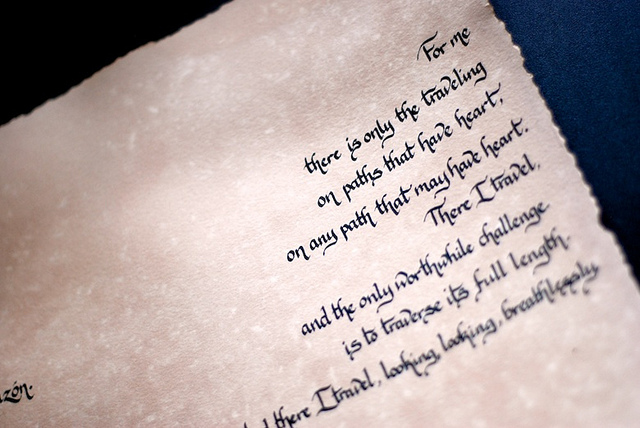 For me
there is only the traveling
on paths that have heart,
on any path that may have heart.
There I travel,
and the only worthwhile challenge
is to traverse its full length.
there I travel, looking, looking, breathlessly.